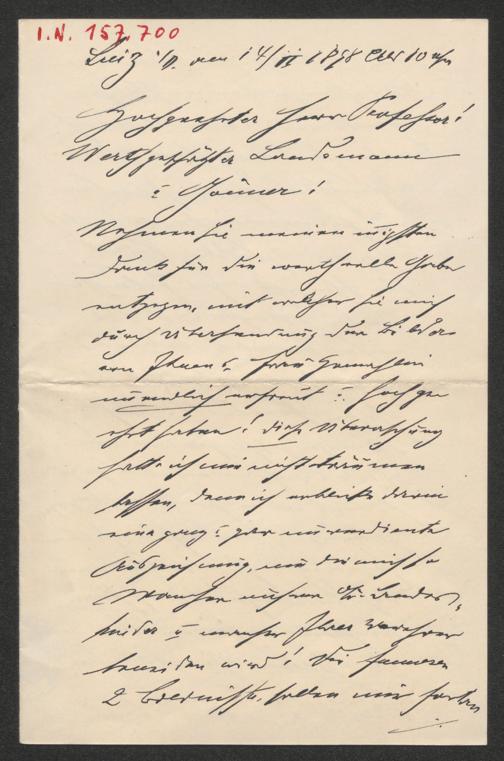 I.N. 157.700
Linz a/D. am 14/II 1898 Uhr 10
Hochgeehrter Herr Professor!
Werthgeschätzter Landsmann
u Gönner!
Nehmen Sie meinen innigsten
Dank für die werthvolle Gabe
entgegen, mit welcher Sie mich
durch Übersendung der Bilder
von Ihnen u. Frau Gemahlin
unendlich erfreut u. hochge
ehrt haben! diese Überraschung
hatte ich mir nicht träumen
lassen, denn ich erblicke darin
eine ganz u. gar unverdiente
Auszeichnung, um die mich so
Mancher unserer Landes,
kinder u mancher Ihrer Verehrer
beneiden wird! Die
2 Bildnisse, sollen mir fortan